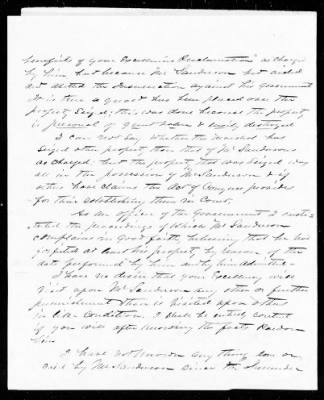 benefits of your Excellencies Proclamation" as charged
by him, but because Mr Sanderson had aided
and abetted the Insurrection against his government
It is true a guard has been placed over the
property Seized; this was done because the property
is personal & easily destroyed
I can not say whether the Marshal has
Seized other property than that of Mr Sandersons
as charged; but the property that was Seized was
all in the possession of Mr Sanderson & if
others have claims the Act of Congress provides
for their establishing them in Court.
As an officer of the Government I instituted
the proceedings of which Mr Sanderson
complains in good faith, believing that he had
forfeited at least his property by reason of the
acts performed by him and by him admitted.
I have no desire that your Excellency will
visit upon Mr Sanderson any other or further
punishment than is visited upon others
in like condition. I shall be entirely content
if you will after knowing the facts Pardon
him
I have not known any thing done or
said by Mr Sanderson since the Surrender